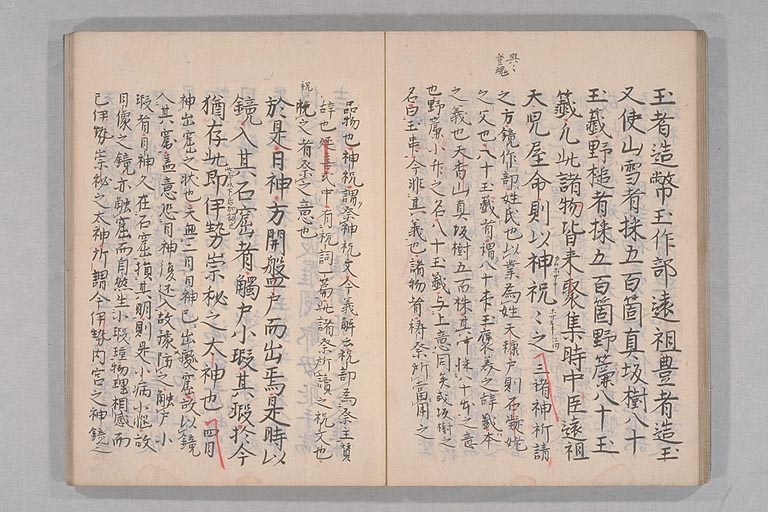 玉者造幣玉作部遠祖豊者造玉
又使山雷者採五百箇真坂樹八十
玉籤野槌者採五百箇野薦八十玉
籤凡此諸物皆来聚集時中臣遠祖
天児屋命則以神祝々之 三諸神祈請
之方鏡作部姓氏也以業為姓天糠戸則石凝姥
之父也八十玉籤者謂八十本玉
之義也天香山真坂樹五百株
也野薦小竹之名八十玉籤与上意同矣或坂樹之
名白玉串今非其義也諸物者祷祭所当用之
品物也神祝謂祭神祝文令義解云祝部為祭主賛
辞也延喜式中有祝詞一篇此諸祭所読之祝文也
祝
祝之者祭之意也
於是日神方開磐戸而出焉是時以
鏡入其石窟者触戸小瑕其瑕於今
猶存此即伊勢崇秘之大神也 四目
神出窟之状也天無二日日神已出幽窟故以鏡
入其窟蓋意恐日神復還入故擬防之触戸小
瑕者日神久在石窟損其明則是小病小恠故
日像之鏡亦触窟而自然生小瑕物理相感而
已伊勢崇秘之大神所謂今伊勢内宮之神鏡之